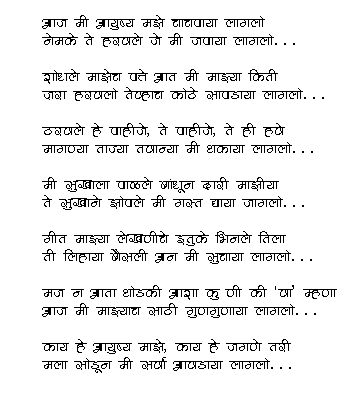 आज मी आयुष्य माझे चाचपाया लागलो
नेमके ते हरवले जे मी जपाया लागलो...
शोधले माझेच पत्ते आत मी माझ्या किती
जरा हरवलो तेव्हाच कोठे सापडाया लागलो...
ठरवले हे पाहीजे, ते पाहीजे, ते ही हवे
मागण्या ताज्या तवान्या मी थकाया लागलो...
मी सुखाला पाळले बांधून दारी माझीया
ते सुखाने झोपले मी गस्त द्याया जागलो...
गीत माझ्या लेखणीचे इतुके भिनले तिला
ती लिहाया बैसली अन मी सुचाया लागलो...
मज न आता थोडकी आशा कुणी की 'वा' म्हणा
आज मी माझ्याच साठी गुणगुणाया लागलो...
काय हे आयुष्य माझे, काय हे जगणे तरी
मला सोडून मी सर्वा आवडाया लागलो...